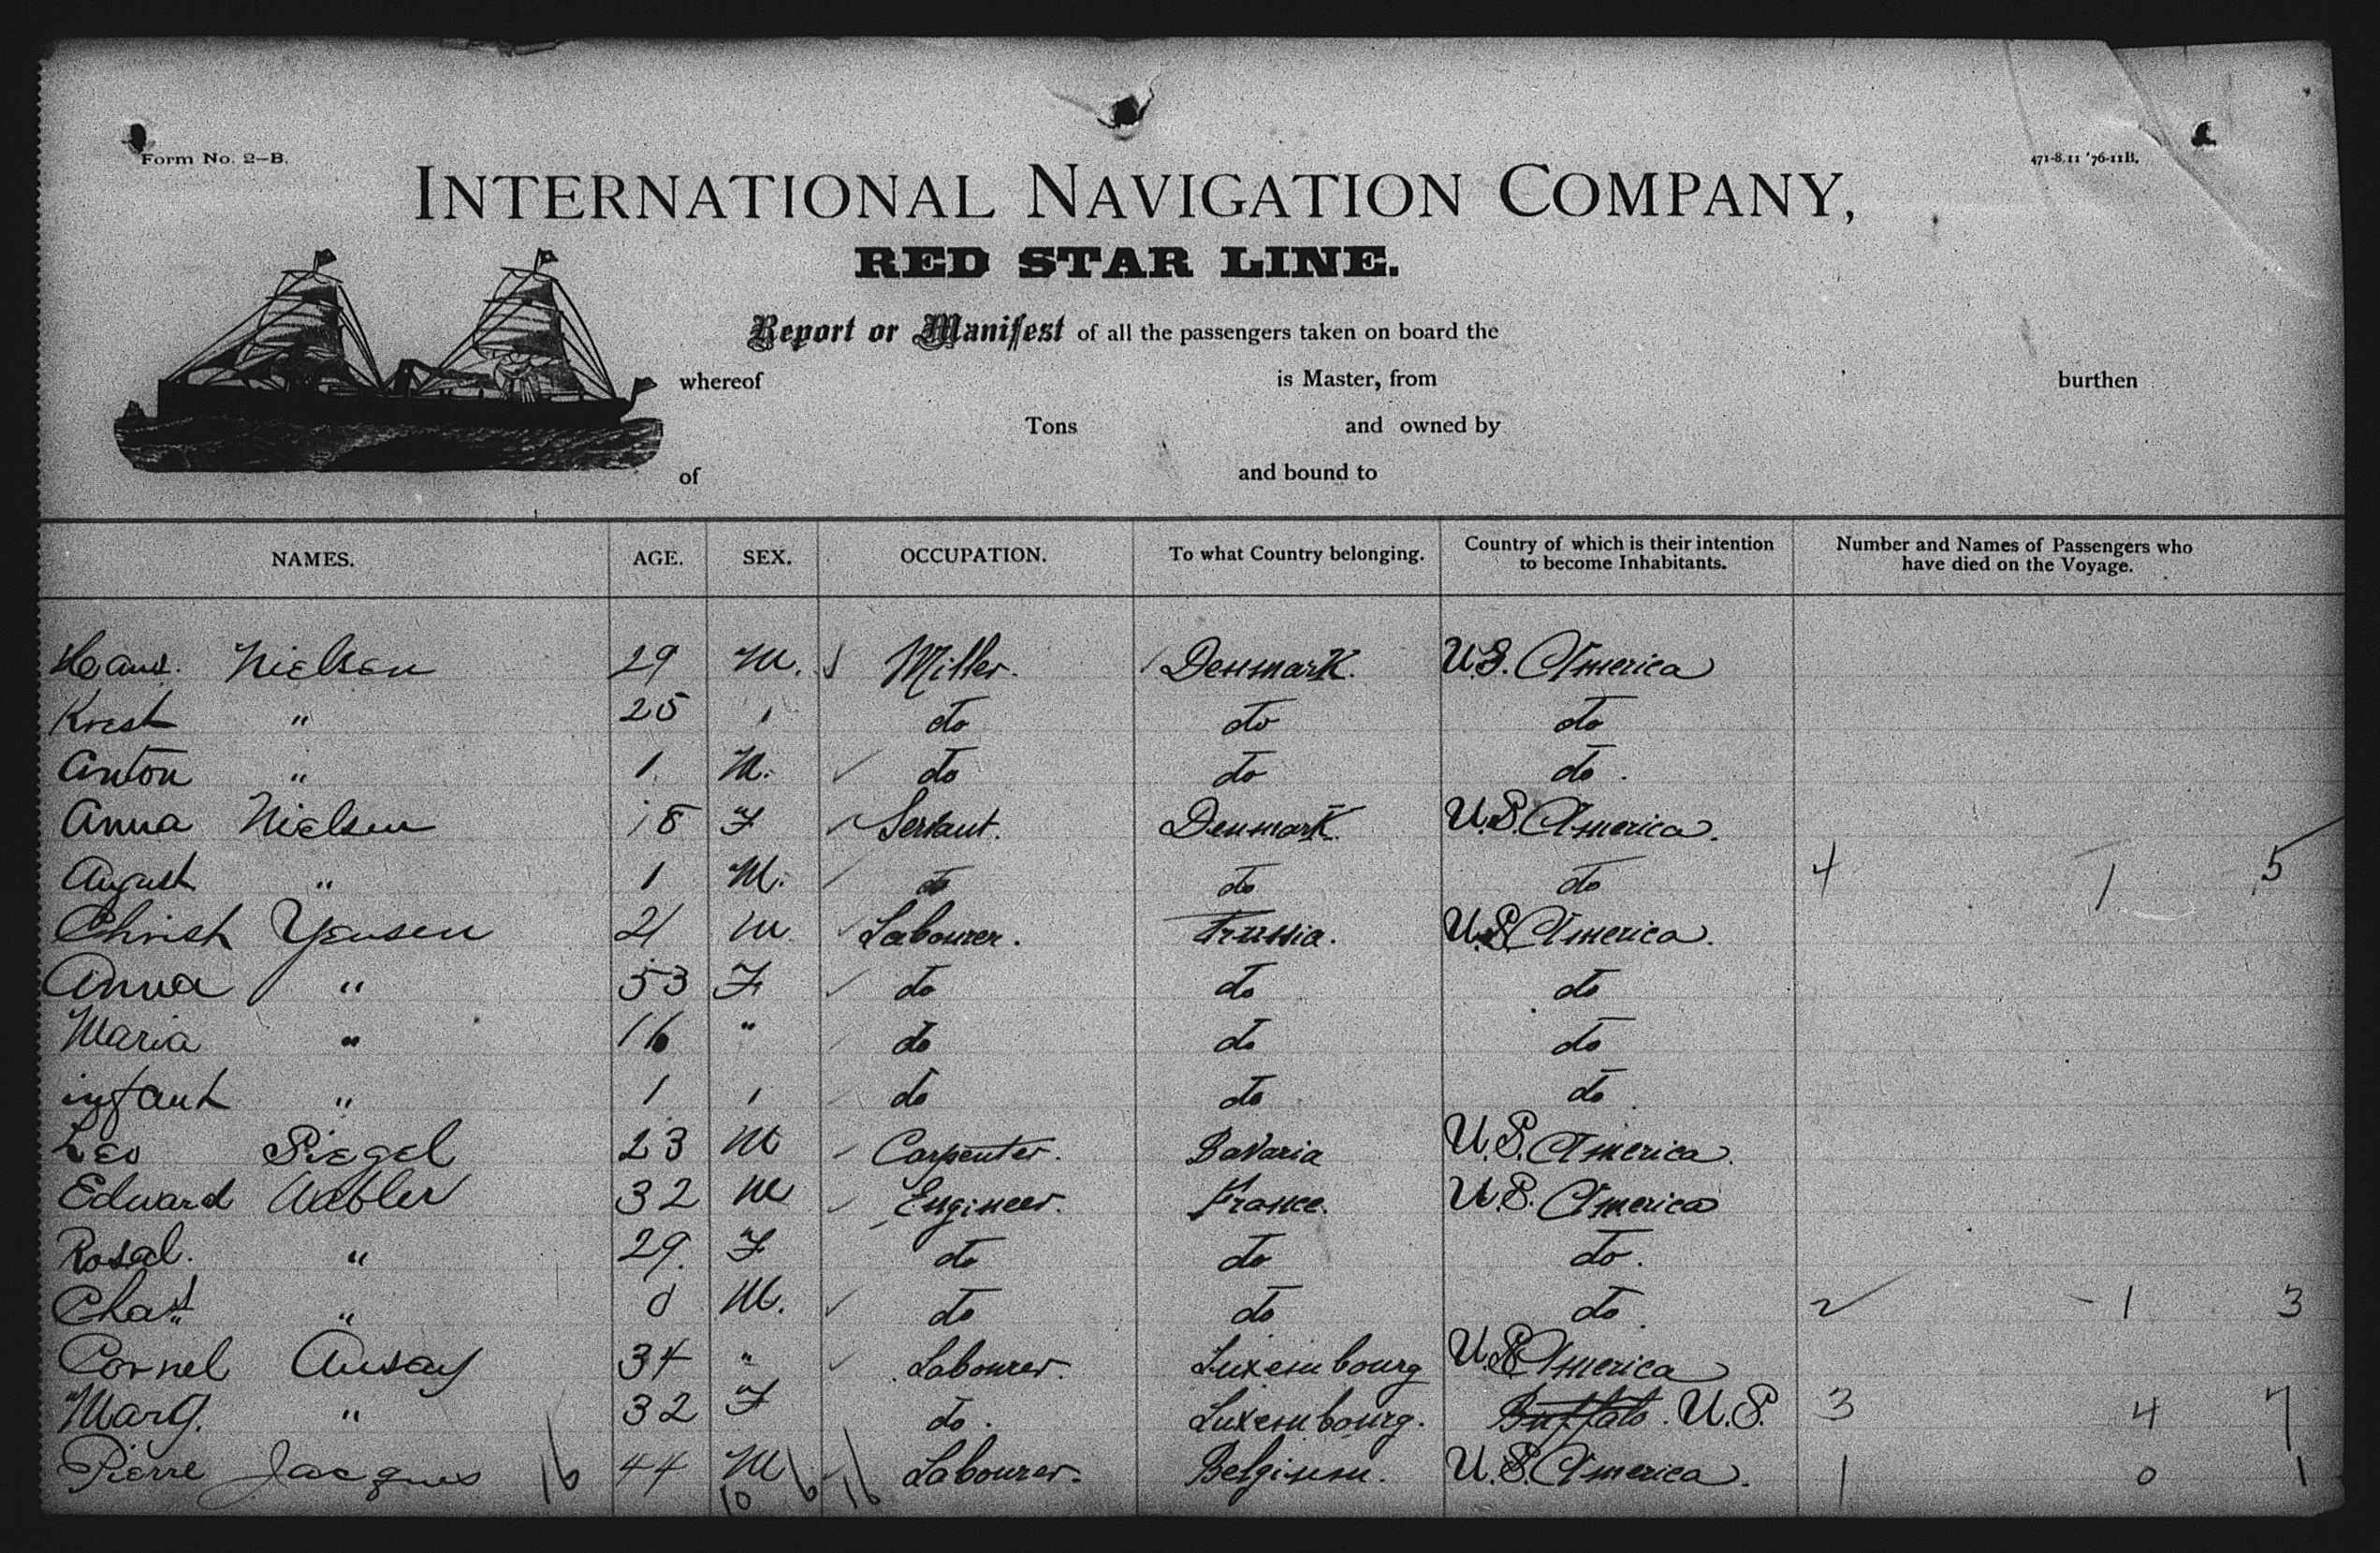 Form No. 2-B.
471-8, 11 '76-11B.
INTERNATIONAL NAVIGATION COMPANY,
RED STAR LINE.
Report or Manifest of all the passengers taken on board the
whereof is Master, from burthen
Tons and owned by
of and bound to
NAMES. AGE. SEX. OCCUPATION. To what Country belonging. Country of which is their intention to become Inhabitants. Number and Names of Passengers who have died on the Voyage.
Hans. Nielsen 29 M. Miller. Denmark. U.S. America
Krest " 25 do do do
Anton " 1. M. do do do.
Anna Nielsen 18 F Servant. Denmark U.S. America.
August " 1 M. do do do 4 1 5
Christ Yensen 21 M Labourer. Prussia. U.S. America.
Anna " 53 F do do do
Maria " 16 " do do do
infant " 1 do do do
Leo Siegel 23 M Carpenter. Bavaria U.S. America.
Edward 32 M Engineer. France. U.S. America
Rosal. " 29. F do do do.
Chas " M. do do do 1 3
Cornel Ausay 34 " Labourer. Luxembourg U.S. America
Marg. " 32 F do. Luxembourg. Buffalo. U.S. 3 4 7
Pierre Jacques 16 44 M 10 6 16 Labourer. Belgium. U.S. America. 1 0 1